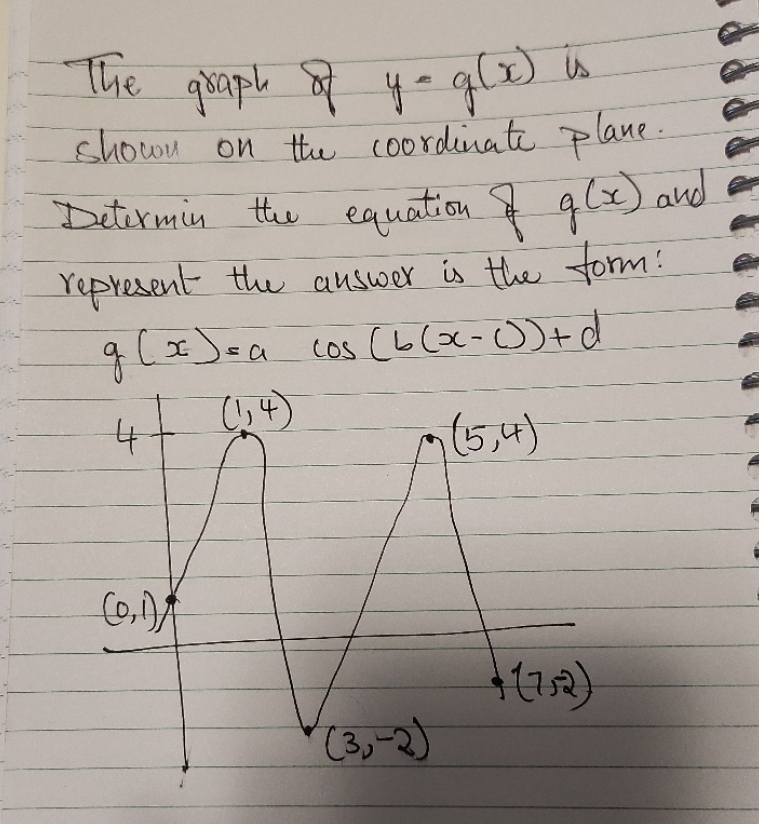 The graph of y = g(x) is
shown on the coordinate plane.
Determin the equation of g(x) and
represent the answer is the form:
g(x) = a cos(b(x-c))+d
4
(1,4)
(5,4)
(0,1)
(7,-2)
(3,-2)